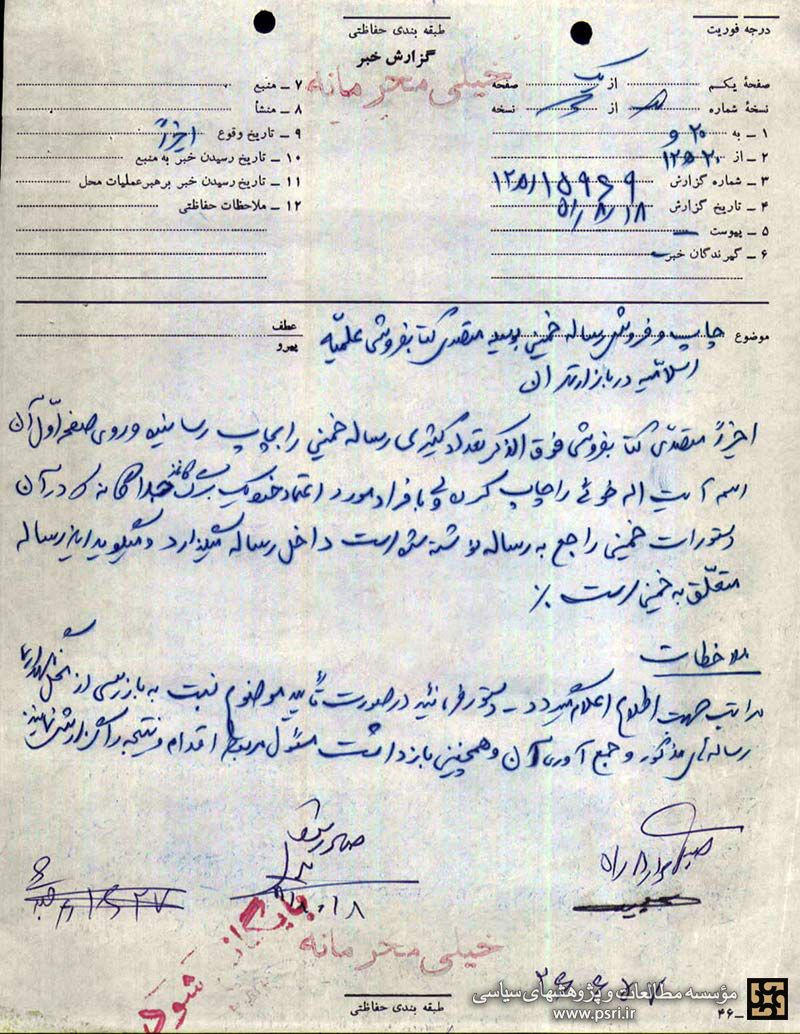 درجه فوریت
طبقه بندی حفاظتی
گزارش خبر
خیلی محرمانه
صفحهٔ یکم از یک صفحه
نسخهٔ شماره از نسخه
۱ ـ به ۲۰ و
۲ ـ از ۲۰ ه‍ ۱۲
۳ ـ شماره گزارش
۴ ـ تاریخ گزارش ۵۱/۸/۱۸
۵ ـ پیوست ـ
۶ ـ گیرندگان خبر
۷ ـ منبع
۸ ـ منشأ
۹ ـ تاریخ وقوع اخیراً
۱۰ ـ تاریخ رسیدن خبر به منبع
۱۱ ـ تاریخ رسیدن خبر برهبر عملیات محل
۱۲ ـ ملاحظات حفاظتی
موضوع چاپ و فروش رساله خمینی بوسیله متصدی کتابفروشی علمیّه
اسلامیه در بازار تهران
عطف
پیرو
اخیراً متصدّی کتابفروشی فوق الذکر تعداد کثیری رساله خمینی را بچاپ رسانیده و روی صفحه اوّل آن
اسم آیت اله خوئی را چاپ کرده ولی با افراد مورد اعتماد خود یک برگ کاغذ جداگانه که در آن
دستورات خمینی راجع به رساله نوشته شده است داخل رساله میگذارد و میگوید این رساله
متعلّق به خمینی است ٪
ملاحظات
مراتب جهت اطلاع اعلام میگردد ـ دستور فرمائید در صورت تأیید موضوع نسبت به بازرسی از
رساله‌های مذکور و جمع آوری آن و همچنین بازداشت مسئول مربوطه اقدام و نتیجه را گزارش نمایند
۵۱/۸/۱۸
بایگانی شود
خیلی محرمانه
طبقه بندی حفاظتی
مؤسسه مطالعات و پژوهشهای سیاسی
www.psri.ir
۴۶ ـ